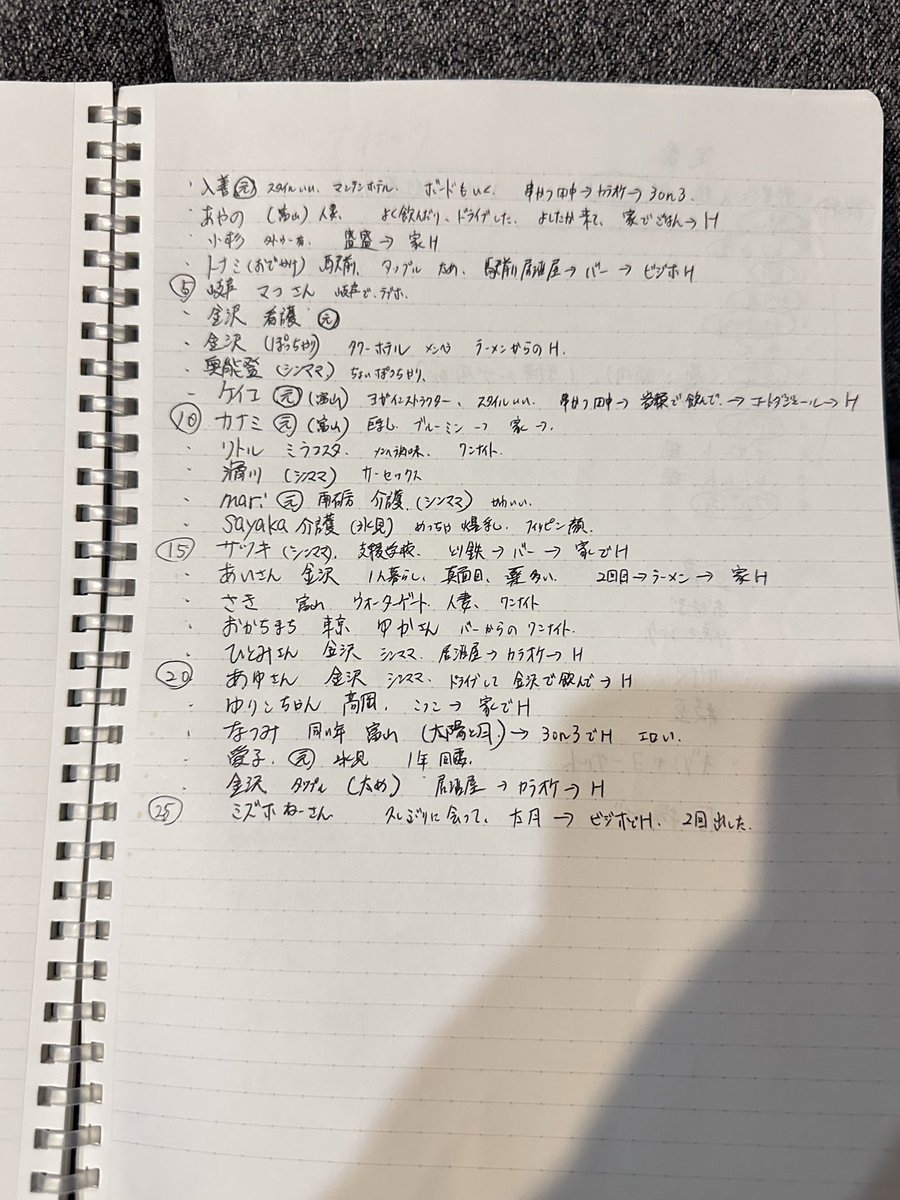 ・入善 ㊎ スタイルいい、マンテンホテル、 ボードもいく、 串かつ田中→カラオケ→3on3
・あやの (富山) 人妻、 よく飲んだり、ドライブした、よしたか来て、家でごはん→H
・小杉 盛盛→ 家H
・トナミ (おでかけ) 駅前、タップル ため、 駅前居酒屋→バー→ ビジホH
⑤ 岐阜 マコさん 岐阜で、ラブホ、
・金沢 看護 元
・金沢 (ぽっちゃり) タワーホテル ラーメンからのH.
・奥能登 (シンママ) ちょいぽっちゃり、
・ケイコ 元 (富山) ヨガインストラクター、スタイルいい、 串かつ田中→ で飲んで、→ →H
⑩ カナミ 元 (富山) ブルーミン → 家→
・リトル ミラコスタ、 ワンナイト.
・滑川 (シンママ) カーセックス
・mari 元 南砺 介護 (シンママ) かわいい.
・sayaka 介護 (氷見) めっちゃ爆乳、フィリピン顔.
⑮ サツキ (シンママ)、 支援学校、 とり鉄→バー→ 家でH
・あいさん 金沢 1人暮らし、真面目、 多い、 2回目→ラーメン→ 家H
・さき 富山 ウォーターゲート 人妻、ワンナイト
・おかちまち 東京 ゆかさん バーからのワンナイト.
・ひとみさん 金沢 シンママ 居酒屋→カラオケ→H
⑳ あゆさん 金沢 シンママ、ドライブして 金沢で飲んで→H
・ゆりこちゃん 高岡、 こっこ→ 家でH
・なつみ 同い年 富山 (太陽と月)→ 3on3でH エロい.
・愛子、 元 氷見 1年同棲、
・金沢 タップル (太め) 居酒屋→カラオケ→H
㉕ ミズホねーさん 久しぶりに会って、 → ビジホでH. 2回出した.